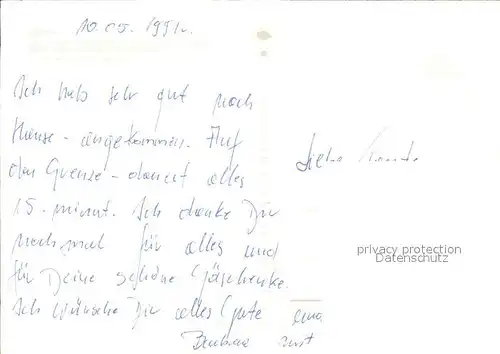 10.05.1991r.
Ich hab sehr gut nach
Hause - angekommen. Auf
der Grenze - dauert alles
15. minut. Ich danke Dir
nochmal für alles und
für Deine schöne Gäschenke.
Ich wünsche Dir alles Gute
privacy protection
Datenschutz